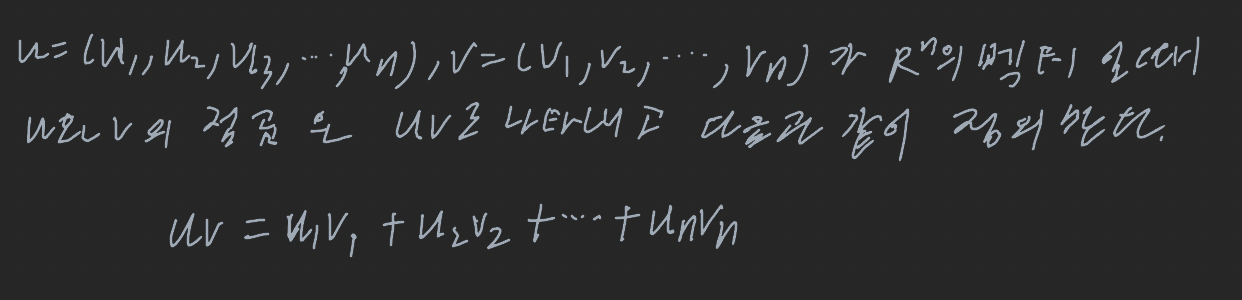 u=(u₁,u₂,u₃,…,uₙ),v=(v₁,v₂,…,vₙ)가 Rⁿ의 벡터 일때
u와 v의 점곱은 uv로 나타내고 다음과 같이 정의한다.
uv=u₁v₁+u₂v₂+…+uₙvₙ